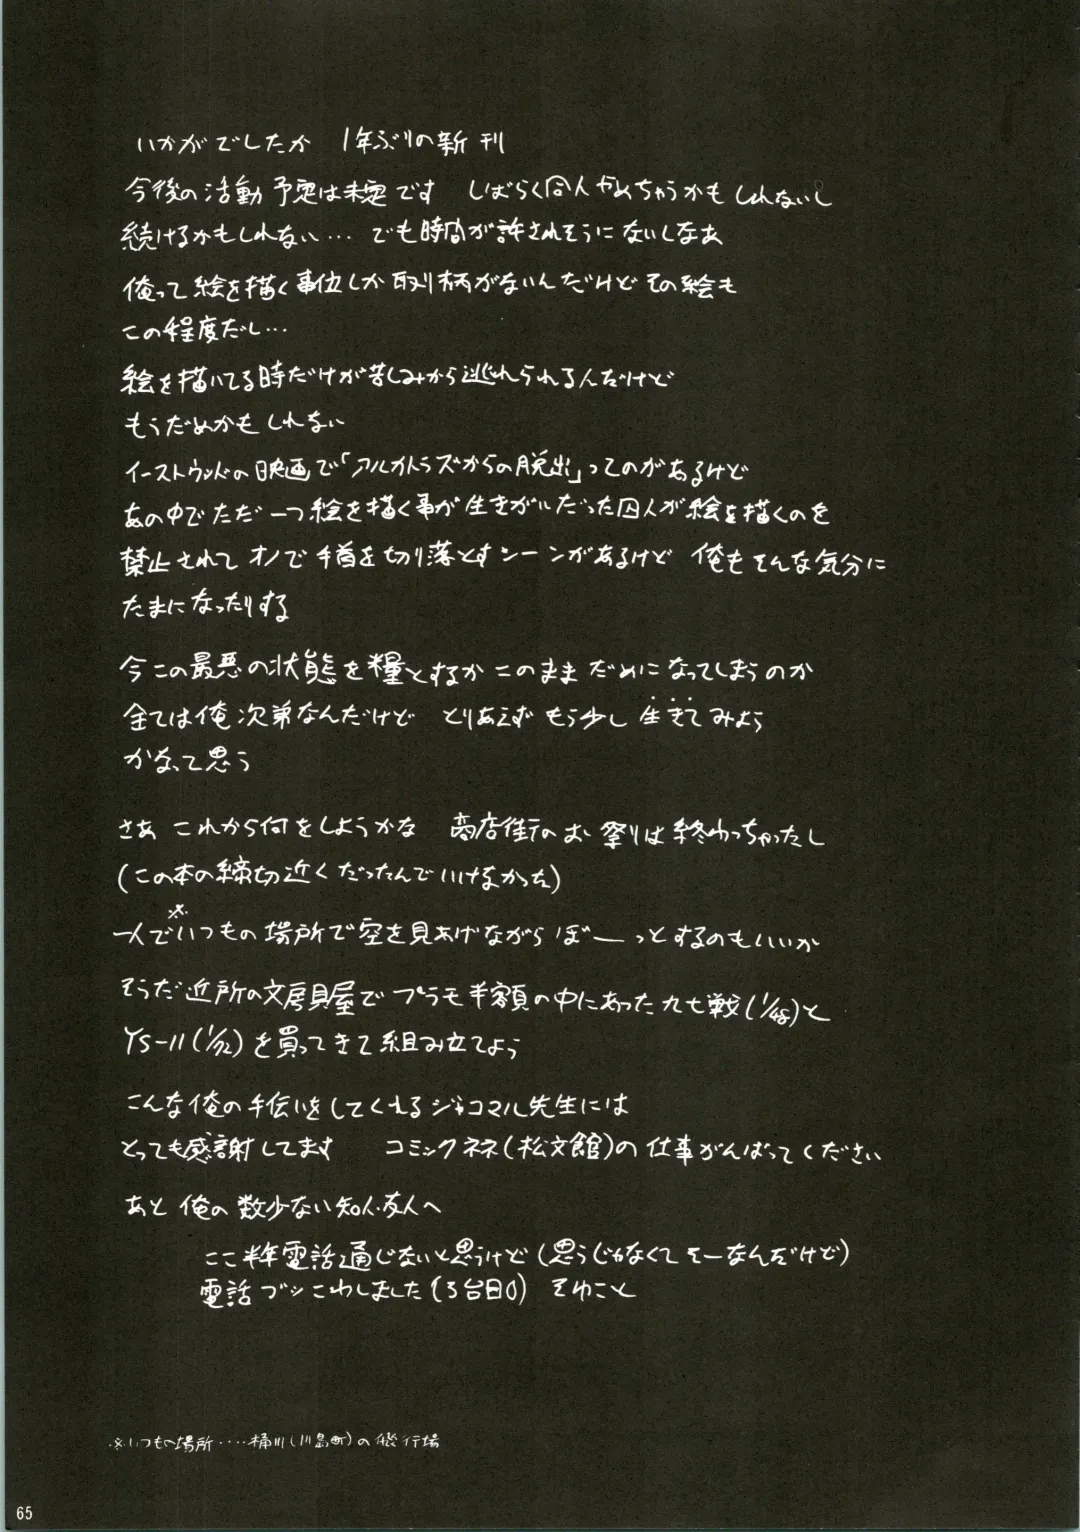 いかがでしたか 1年ぶりの新刊
今後の活動予定は未定です しばらく同人やめちゃうかもしれないし
続けるかもしれない… でも時間が許されそうにないしなあ
俺って絵を描く事位しか取り柄がないんだけどその絵も
この程度だし…
絵を描いてる時だけが苦しみから逃れられるんだけど
もうだめかもしれない
イーストウッドの映画で「アルカトラズからの脱出」ってのがあるけど
あの中でただ一つ絵を描く事が生きがいだった囚人が絵を描くのを
禁止されてオノで手首を切り落とすシーンがあるけど 俺もそんな気分に
たまになったりする
今この最悪の状態を糧とするかこのままだめになってしまうのか
全ては俺次第なんだけど とりあえずもう少し生きてみよう
かなって思う
さあ これから何をしようかな 商店街のお祭りは終わっちゃったし
(この本の締切近くだったんでいけなかった)
一人で※いつもの場所で空を見あげながらぼーっとするのもいいか
そうだ近所の文房具屋でプラモ半額の中にあった九七戦(1/48)と
YS-11(1/72)を買ってきて組み立てよう
こんな俺の手伝いをしてくれるジャコマル先生には
とっても感謝してます コミックネネ(松文館)の仕事がんばってください
あと俺の数少ない知人・友人へ
ここ半年電話通じないと思うけど(思うじゃなくてそーなんだけど)
電話ブッこわしました(3台目) そゆこと
※いつもの場所‥‥桶川(川島町)の飛行場
65